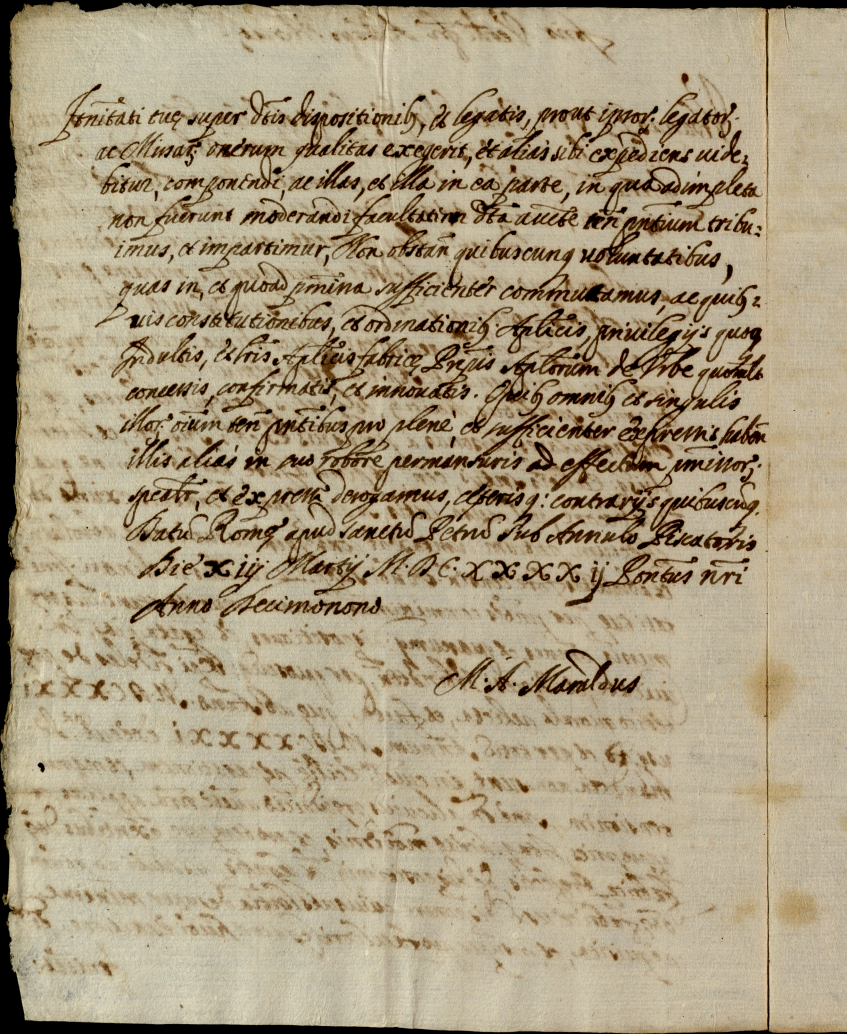 super dtis dispositionib, et legatis, prout ipsor: legator:
ac Missar: onerum qualitas exegerit, et alias tibi expediens uide:
bitur, componendi, ac illas, et illa in ea parte, in qua adimpleta
non fuerunt moderandi facultatem dta aucte ten pntium tribu:
imus, et impartimur, Non obstan quibuscunq uoluntatibus,
quas in, et quoad pmissa sufficienter commutamus, ac quib:
uis constitutionibus, et ordinationib Aplicis, priuilegijs quoq
Indultis, et Lris Aplicis fabricę Prpis Aplorum de Vrbe quomlt
concessis, confirmatis, et innouatis. Quib omnib et singulis
illor: oium ten pntibus pro plene et sufficienter expressis haben
illis alias in suo robore permansuris ad effectum pmissor:
spealr, et expresse derogamus, ceterisq: contrarijs quibuscuq.
Datū Romę apud Sanctū Petrū Sub Annulo Piscatoris
Die xiij Martij M.D.C.XXXXij Pontus nri
Anno Decimonono
M. A. Maraldus